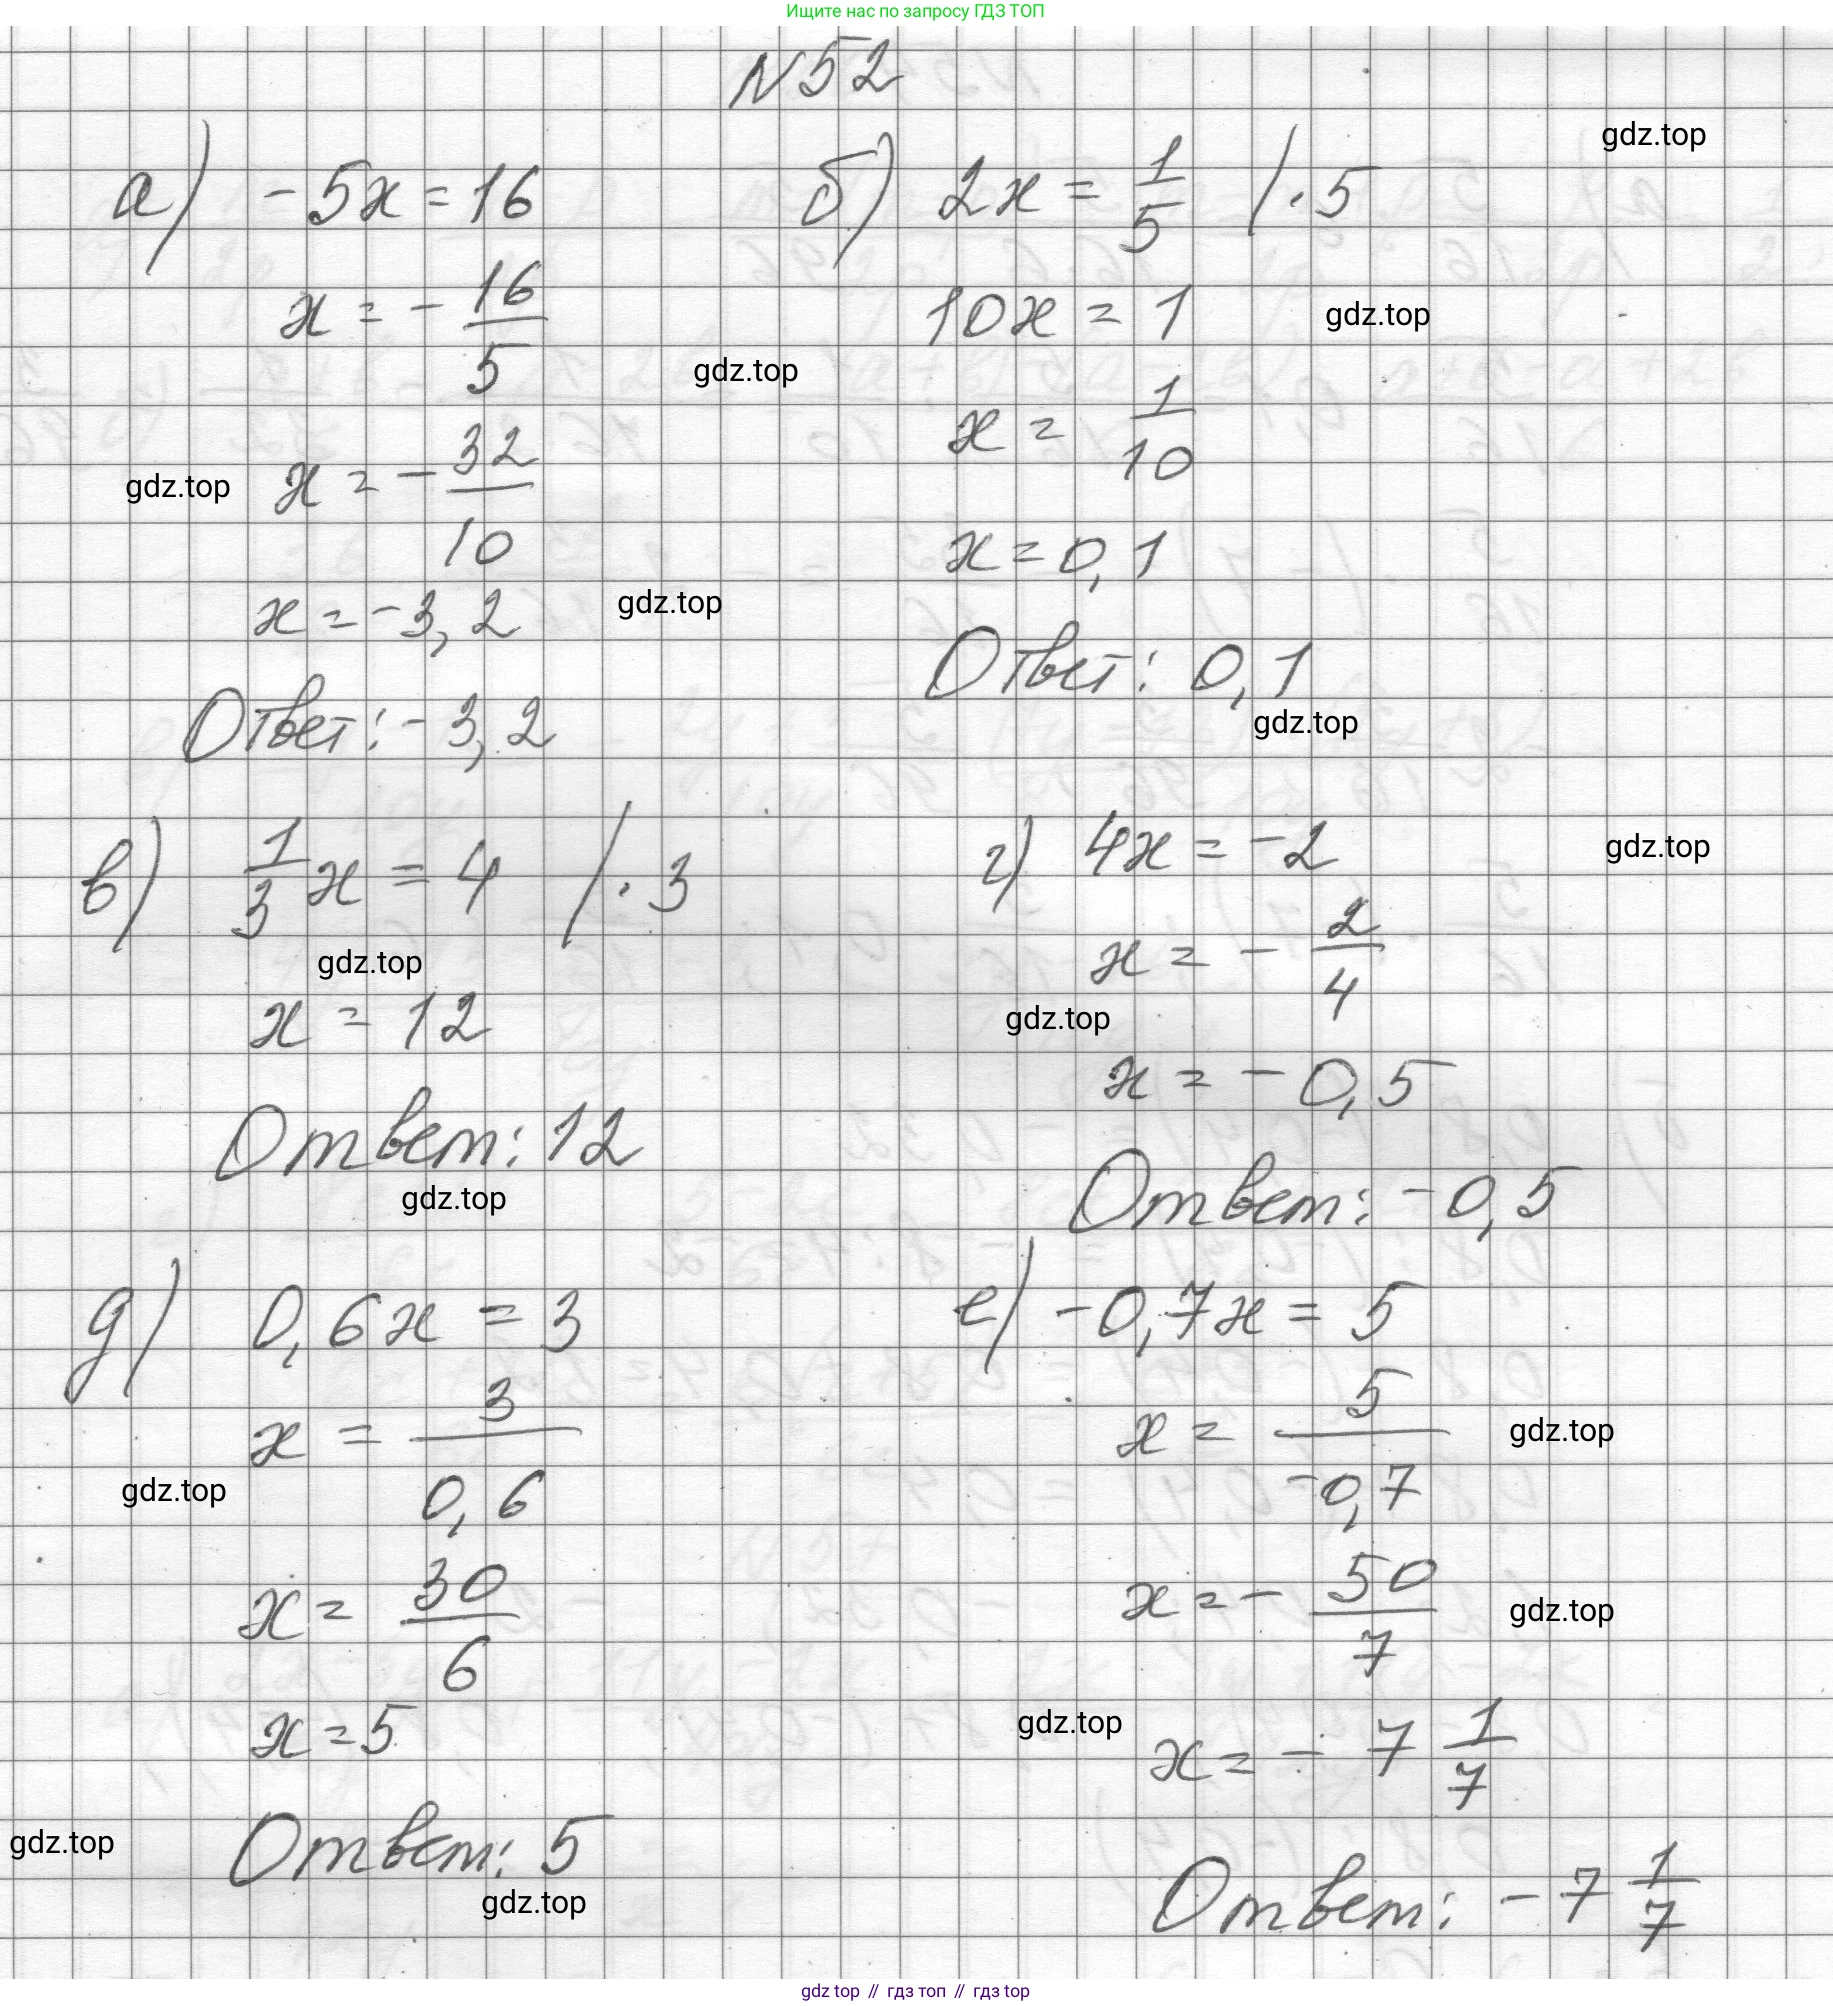 Ищите нас по запросу ГДЗ ТОП
N52
gdz.top
а) -5x = 16
x = - 16/5
gdz.top
gdz.top
x = - 32/10
x = -3,2
gdz.top
Ответ: -3,2
б) 2x = 1/5 / · 5
10x = 1
gdz.top
x = 1/10
x = 0,1
Ответ: 0,1
gdz.top
в) 1/3 x = 4 / · 3
gdz.top
x = 12
Ответ: 12
gdz.top
г) 4x = -2
gdz.top
x = - 2/4
gdz.top
x = -0,5
Ответ: -0,5
д) 0,6x = 3
x = 3/0,6
gdz.top
x = 30/6
x = 5
gdz.top
Ответ: 5
gdz.top
е) -0,7x = 5
x = 5/-0,7
gdz.top
x = - 50/7
gdz.top
gdz.top
x = - 7 1/7
Ответ: -7 1/7
gdz top // гдз топ // гдз top